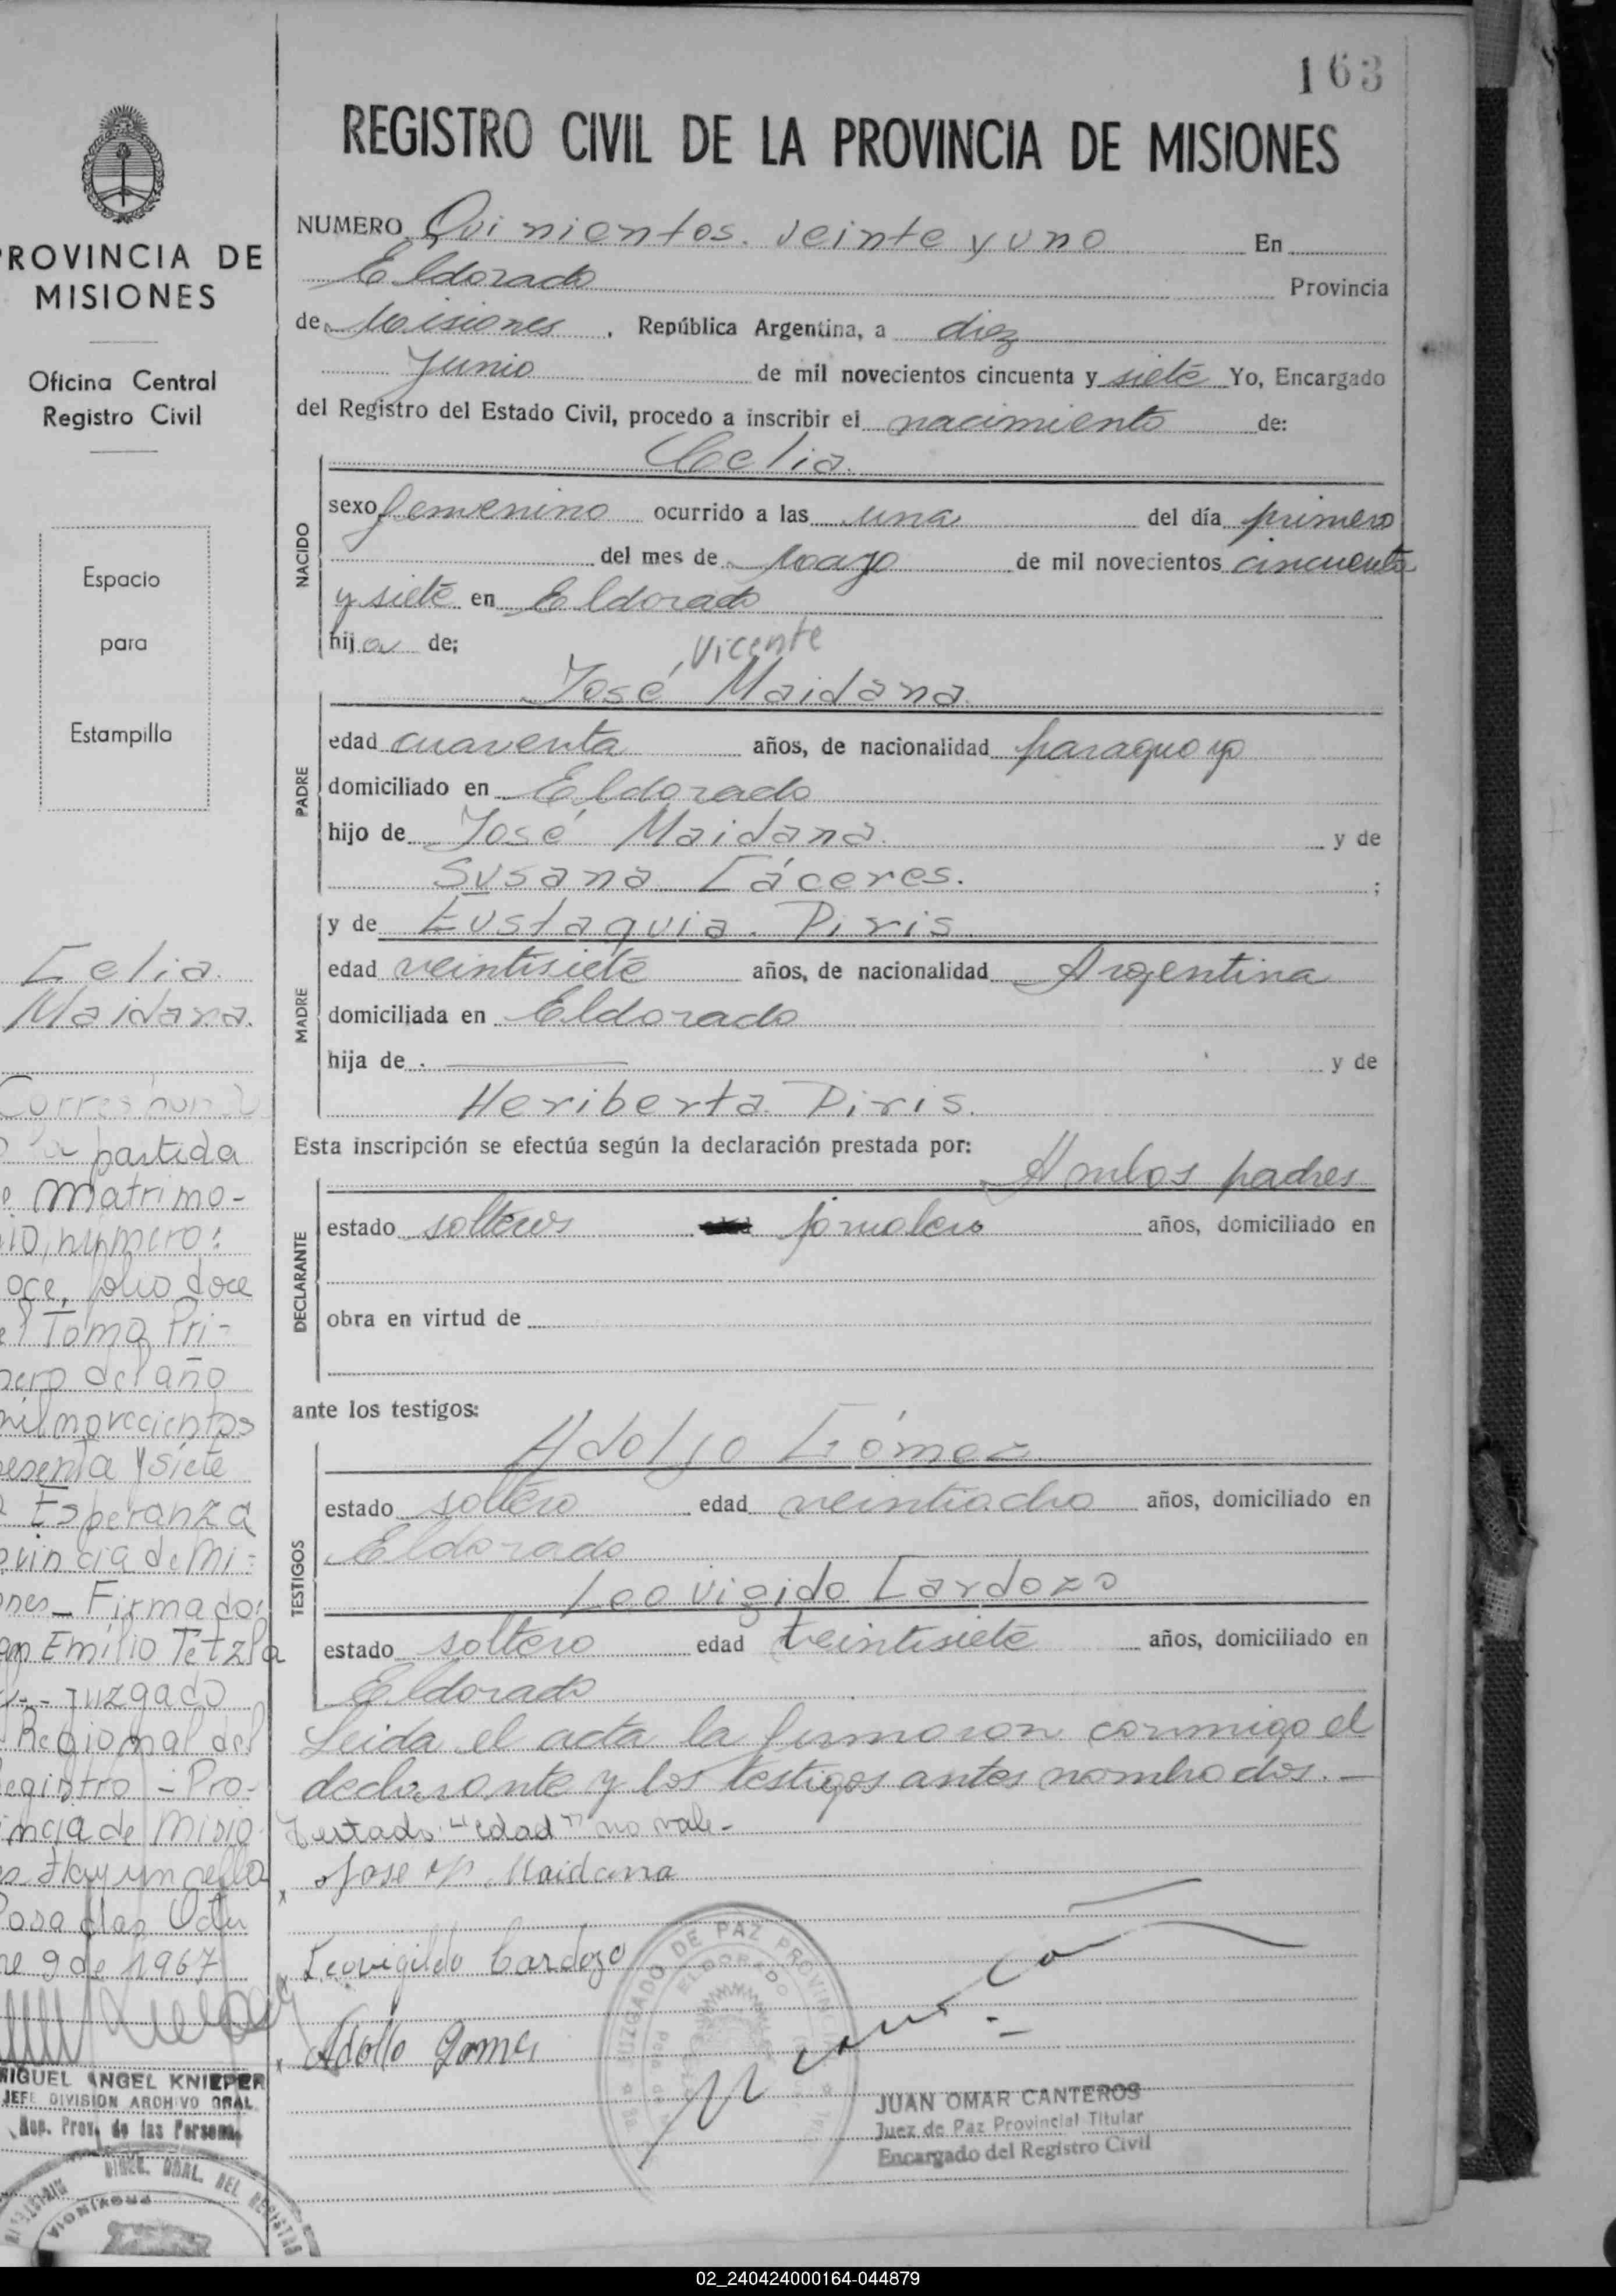 163
REGISTRO CIVIL DE LA PROVINCIA DE MISIONES
NUMERO Quinientos veinte y uno En
Eldorado Provincia
de Misiones, República Argentina, a diez
Junio de mil novecientos cincuenta y siete Yo, Encargado
del Registro del Estado Civil, procedo a inscribir el nacimiento de:
Celia
NACIDO
sexo femenino ocurrido a las una del día primero
del mes de Mayo de mil novecientos cincuenta
y siete en Eldorado
hija de;
Vicente
José Maidana
PADRE
edad cuarenta años, de nacionalidad paraguayo
domiciliado en Eldorado
hijo de José Maidana y de
Susana Cáceres. ;
MADRE
y de Eustaquia Piris
edad veintisiete años, de nacionalidad Argentina
domiciliada en Eldorado
hija de . y de
Heriberta Piris.
Esta inscripción se efectúa según la declaración prestada por:
Ambos padres
DECLARANTE
estado solteros jornalero años, domiciliado en
obra en virtud de
ante los testigos:
Adolfo Gómez
TESTIGOS
estado soltero edad veintiocho años, domiciliado en
Eldorado
Leovigido Cardozo
estado soltero edad veintisiete años, domiciliado en
Eldorado
Leida el acta la firmaron conmigo el
declarante y los testigos antes nombrados.-
Testado "edad" no vale-
x Jose Maidana
x Leovigildo Cardozo
x Adolfo Gomez
JUZGADO DE PAZ PROVINCIAL
ELDORADO
JUAN OMAR CANTEROS
Juez de Paz Provincial Titular
Encargado del Registro Civil
PROVINCIA DE
MISIONES
Oficina Central
Registro Civil
Espacio
para
Estampilla
Celia
Maidana.
partida
matrimo-
número:
oce, folio doce
Tomo Pri-
mero del año
mil novecientos
esenta y siete
Esperanza
ovincia de Mi-
ones_ Firmado:
Emilio Tetzla
Juzgado
Regional del
egistro - Pro-
incia de Misio
Hay un sello
Posadas Octu
re 9 de 1967
MIGUEL ANGEL KNIEPER
JEFE DIVISION ARCHIVO GRAL.
Rep. Prov. de las Personas
DIREC. GRAL. DEL REGISTRO
02_240424000164-044879